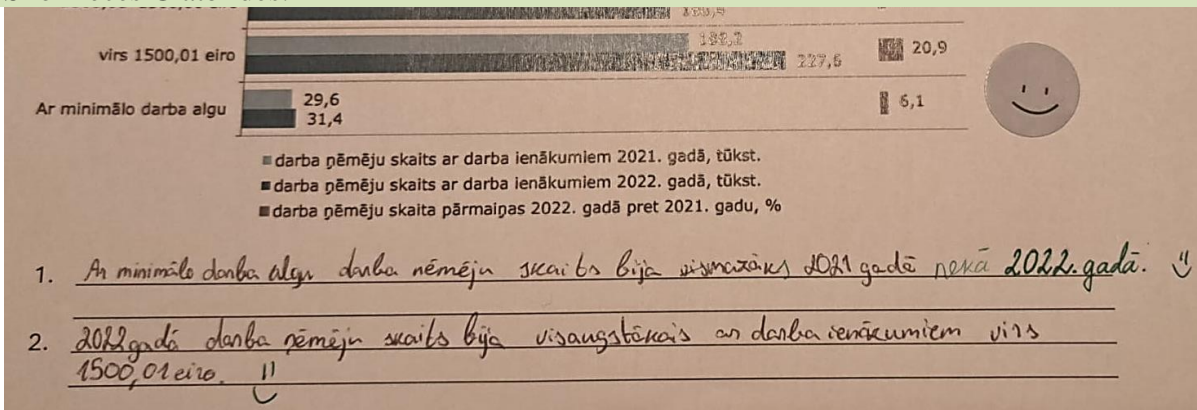 virs 1500,01 eiro
188,2
227,6
20,9
Ar minimālo darba algu
29,6
31,4
6,1
darba ņēmēju skaits ar darba ienākumiem 2021. gadā, tūkst.
darba ņēmēju skaits ar darba ienākumiem 2022. gadā, tūkst.
darba ņēmēju skaita pārmaiņas 2022. gadā pret 2021. gadu, %
1. Ar minimālo darba algu darba nēmēju skaits bija vismazāks 2021 gadā nekā 2022. gadā.
2. 2022 gadā darba ņēmēju skaits bija visaugstākais ar darba ienākumiem virs
1500,01 eiro.